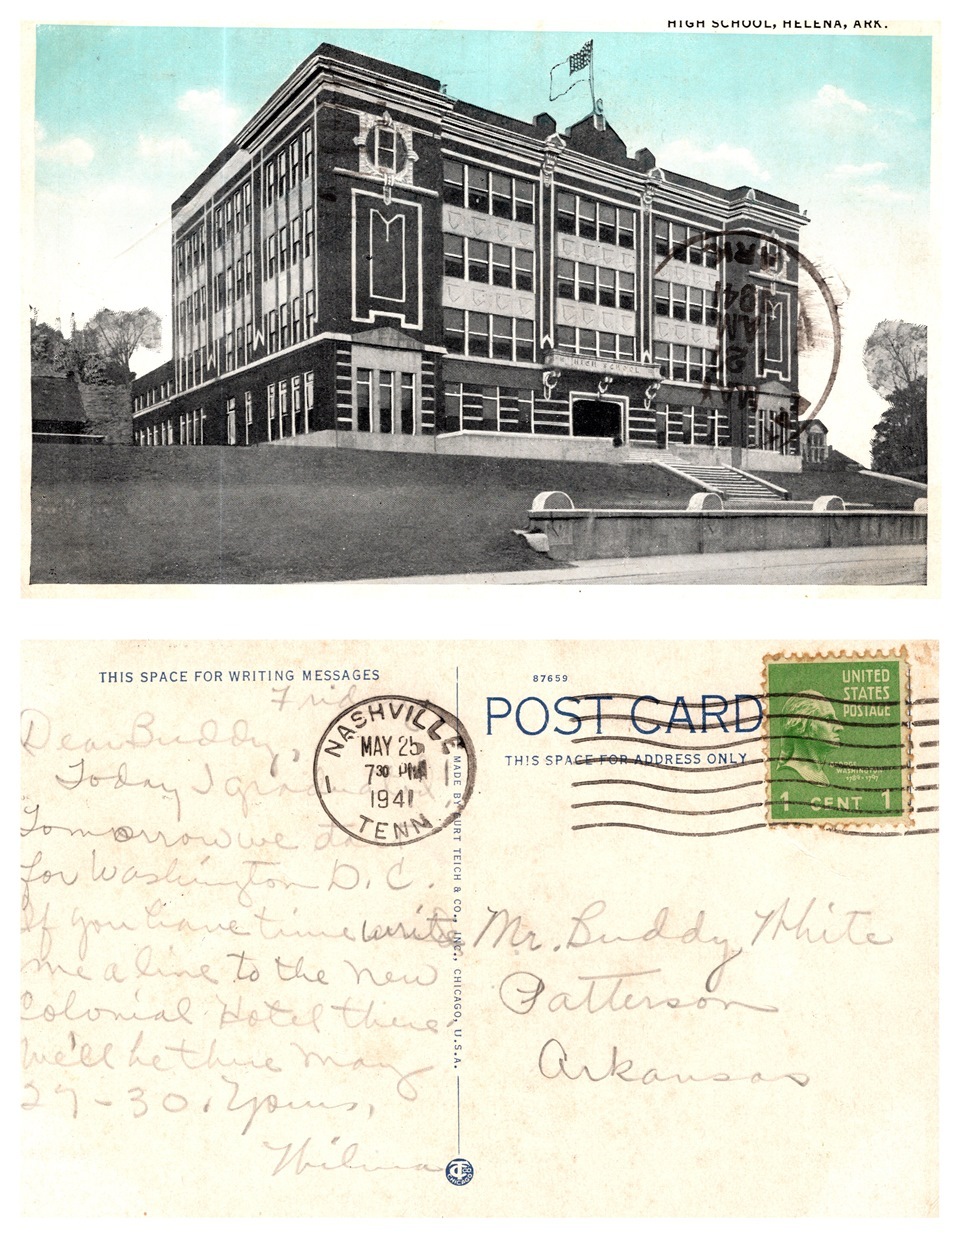 HIGH SCHOOL, HELENA, ARK.
HIGH SCHOOL
ARK.
1941
AM
MAY
THIS SPACE FOR WRITING MESSAGES
Frid
Dear Buddy,
Today I graduated,
Tomorrow we
for Washington D.C.
If you have time write
me a line to the New
Colonial Hotel there.
We'll be there May
27-30. Yours,
Wilma
NASHVILLE
MAY 25
7 30 PM
1941
TENN.
MADE BY CURT TEICH & CO., INC., CHICAGO, U.S.A.
CHICAGO
87659
POST CARD
THIS SPACE FOR ADDRESS ONLY
UNITED
STATES
POSTAGE
GEORGE
WASHINGTON
1789-1797
1 CENT 1
Mr. Buddy White
Patterson
Arkansas